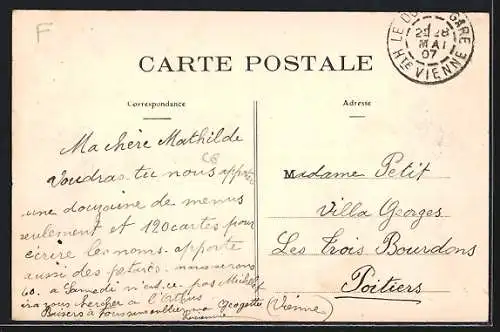 F
LE DO GARE
28
MAI
07
HTE VIENNE
CARTE POSTALE
Correspondance
Adresse
Ma chère Mathilde
Voudras-tu nous apporter
une douzaine de menus
seulement et 120 cartes pour
écrire les noms. apporte
aussi des
60. à Samedi n'est-ce-pas
vous chercher à l'
Baisers à
Georgette
Madame Petit
Villa Georges
Les Trois Bourdons
Poitiers
(Vienne)